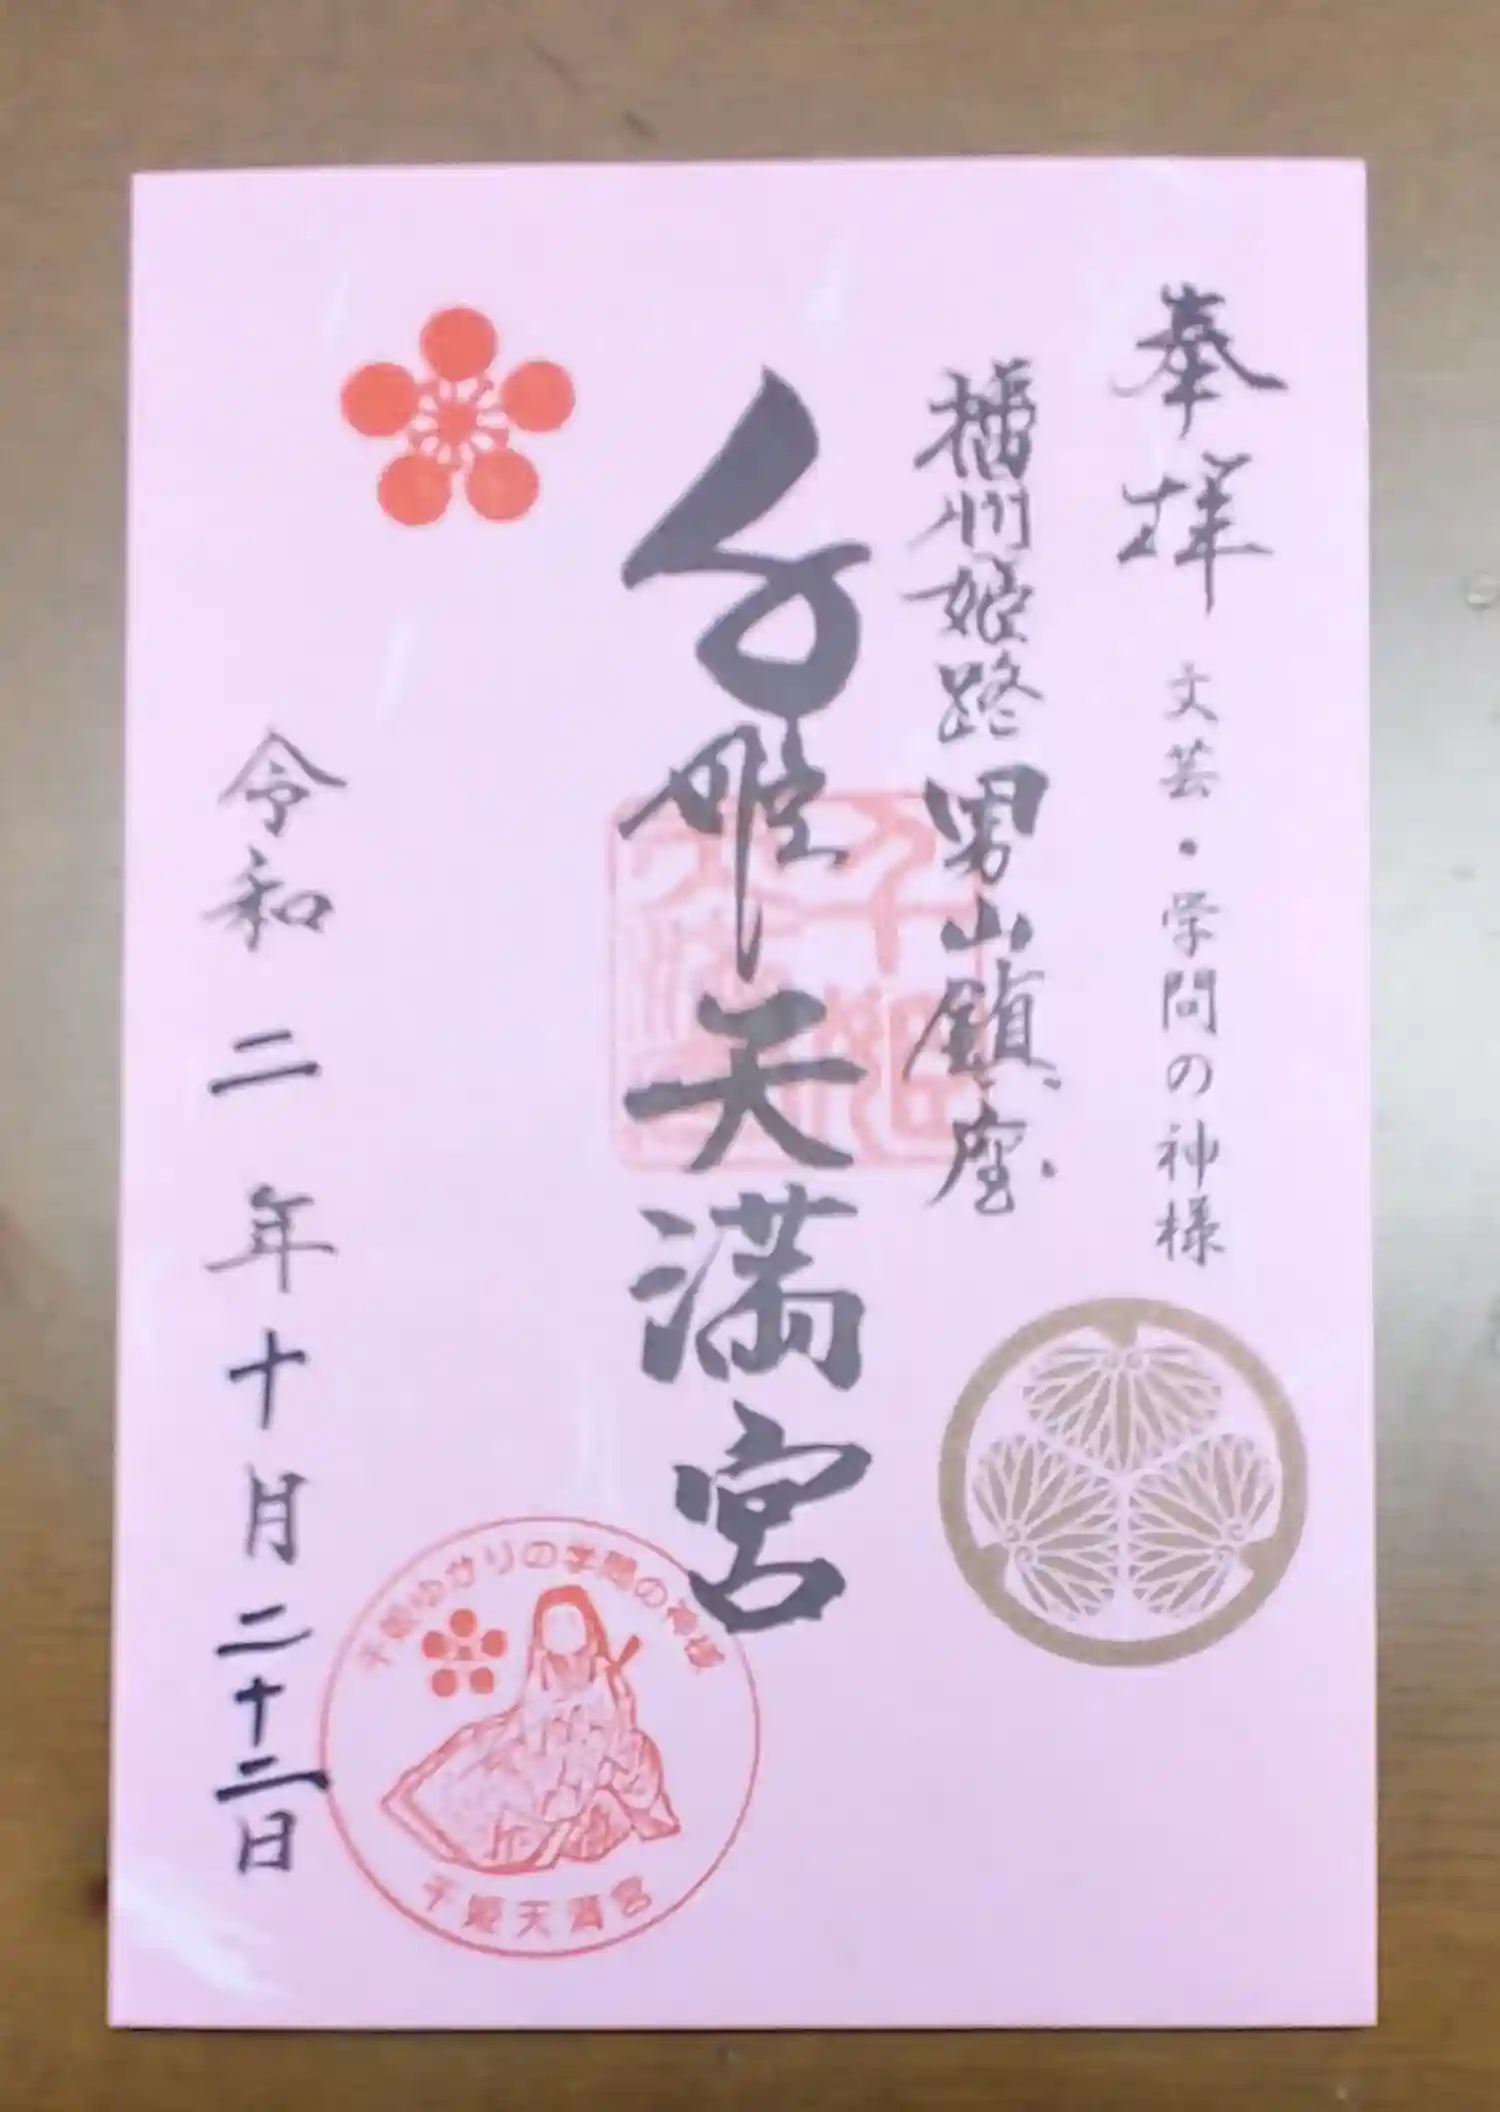 奉拝
文芸・学問の神様
播州姫路男山鎮座
千姫天満宮
令和二年十月二十二日
千姫ゆかりの学問の神様
千姫天満宮